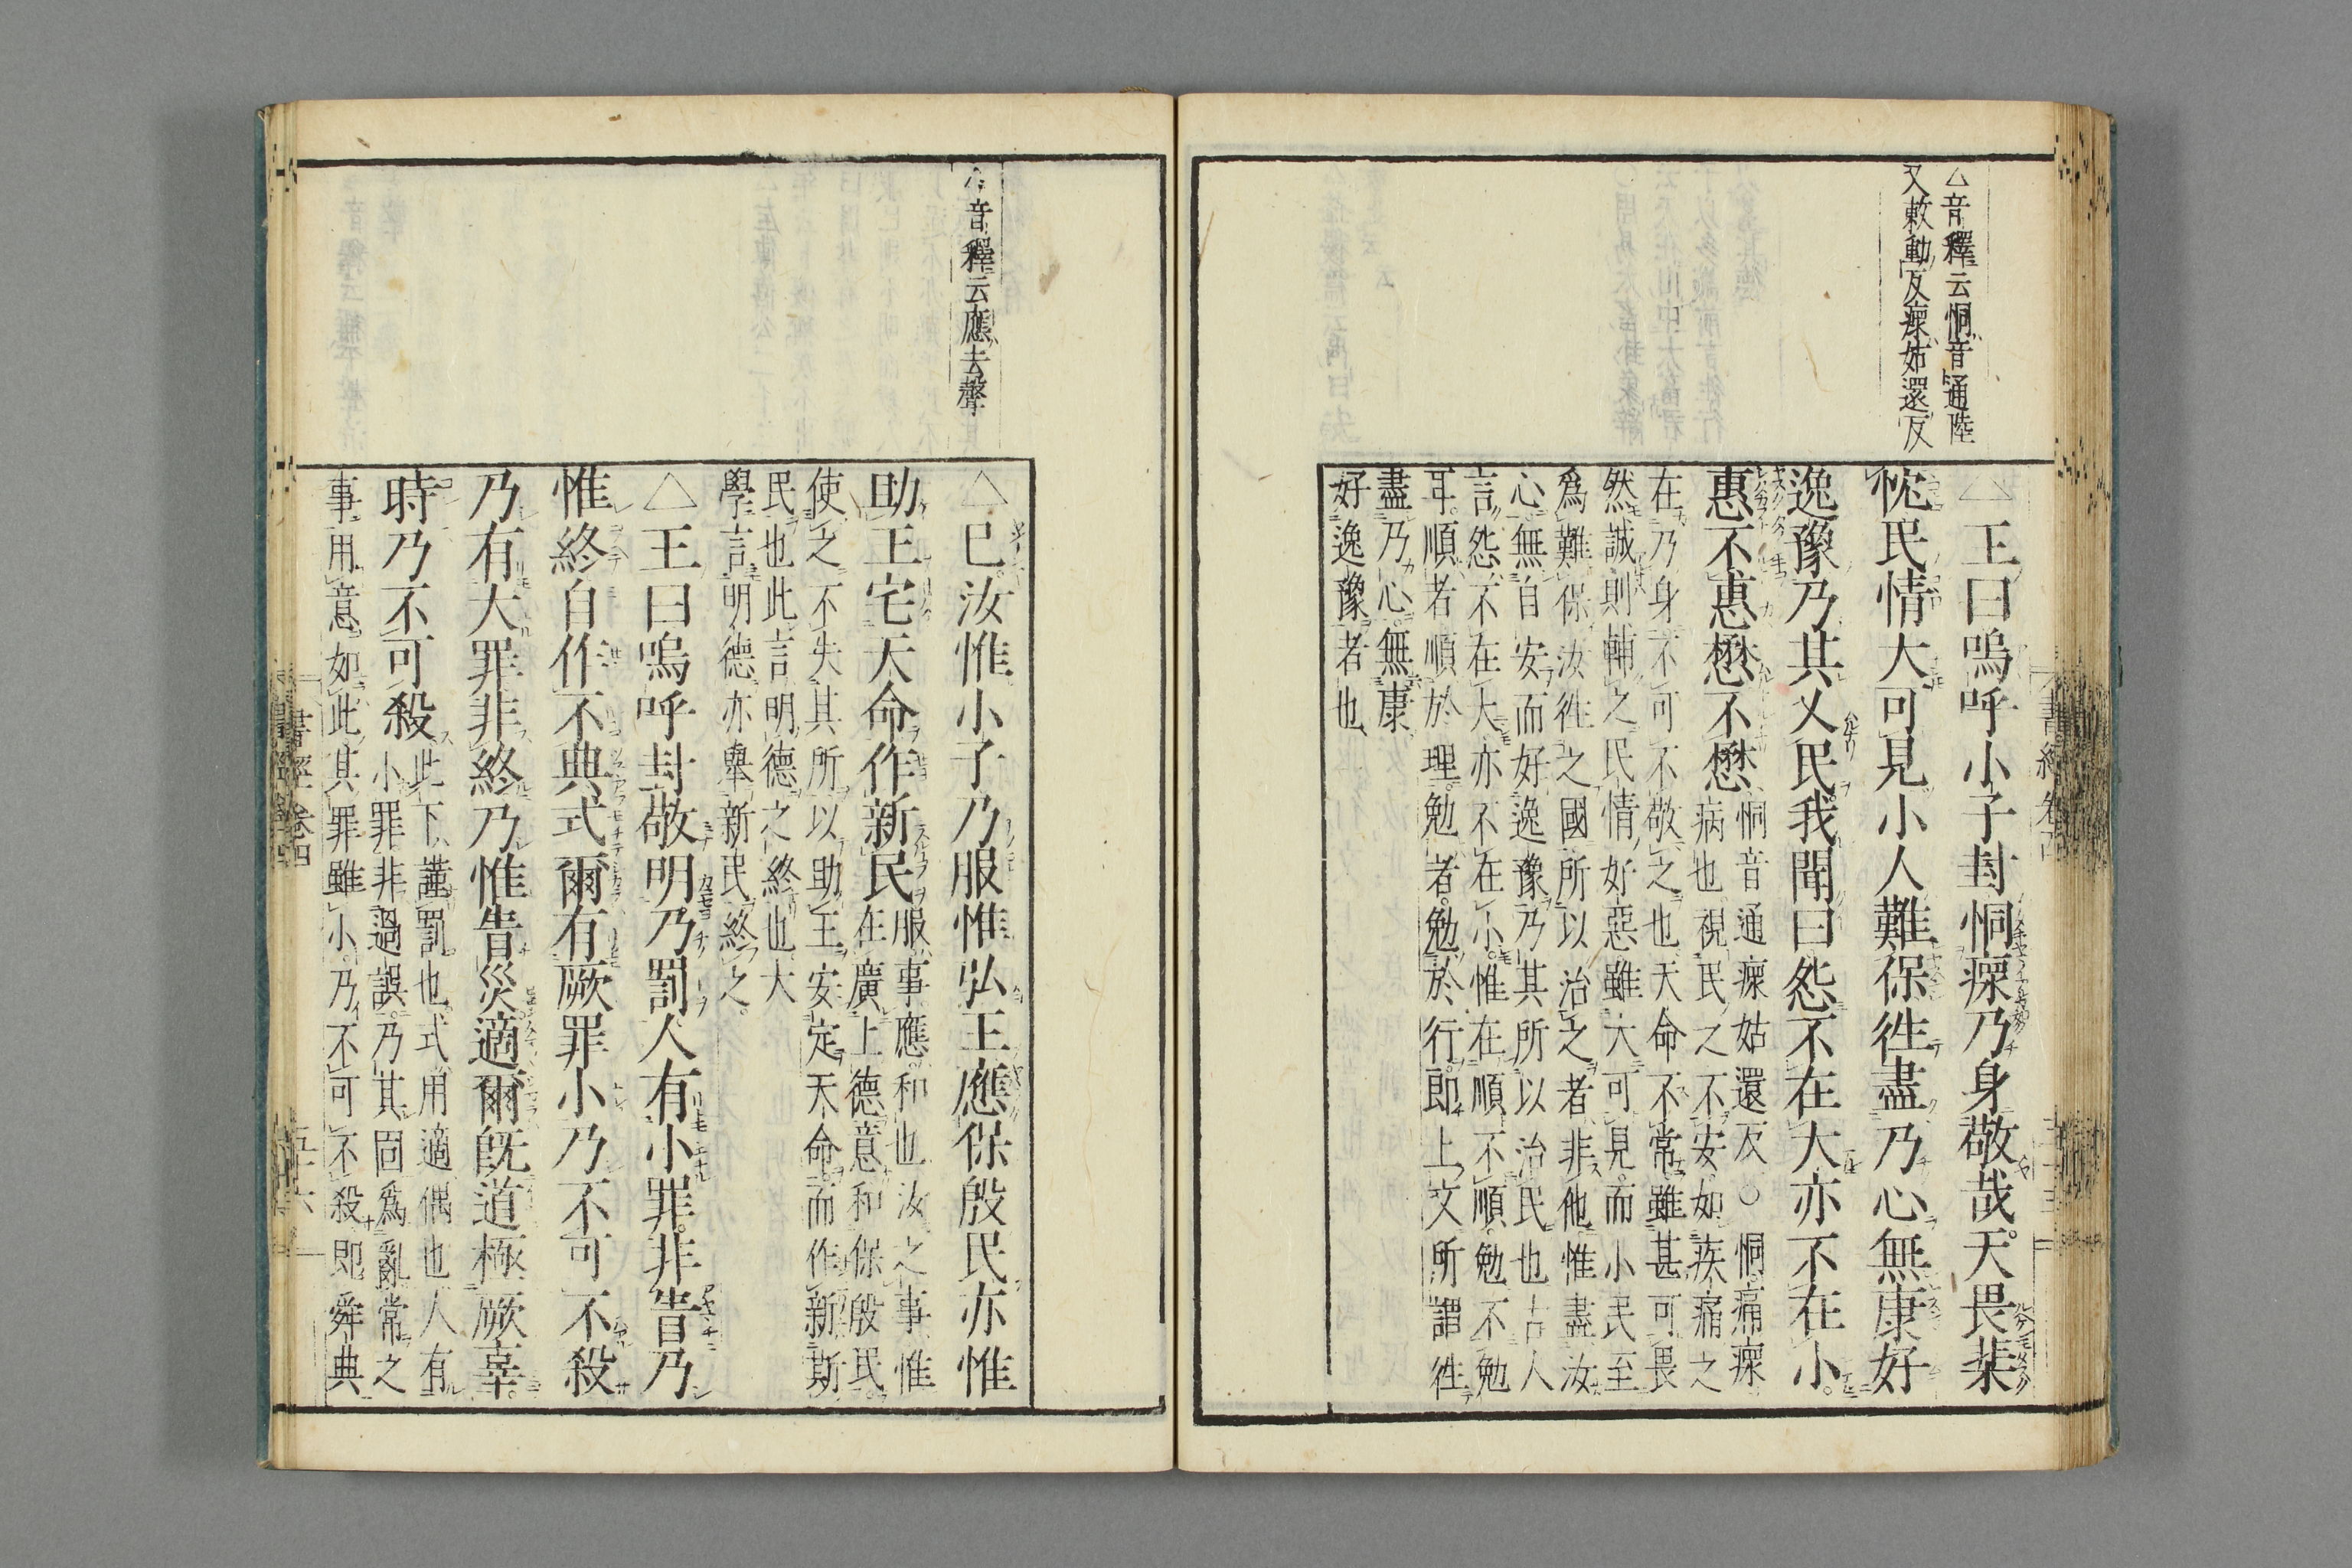 △音釋云恫音通陸
又敕動反瘝姑還反
△王曰嗚呼小子封恫瘝乃身敬哉天畏棐
忱民情大可見小人難保徃盡乃心無康好
逸豫乃其乂民我聞曰怨不在大亦不在小
惠不惠懋不懋
恫音通瘝姑還反○恫痛瘝
病也視民之不安如疾痛之
在乃身不可不敬之也天命不常雖甚可畏
然誠則輔之民情好惡雖大可見而小民至
爲難保汝徃之國所以治之者非他惟盡汝
心無自安而好逸豫乃其所以治民也古人
言怨不在大亦不在小惟在順不順勉不勉
耳順者順於理勉者勉於行即上文所謂徃
盡乃心無康
好逸豫者也
音釋云應去聲
△已汝惟小子乃服惟弘王應保殷民亦惟
助王宅天命作新民
服事應和也汝之事惟
在廣上德意和保殷民
使之不失其所以助王安定天命而作新斯
民也此言明德之終也大
學言明德亦舉新民終之
△王曰嗚呼封敬明乃罰人有小罪非眚乃
惟終自作不典式爾有厥罪小乃不可不殺
乃有大罪非終乃惟眚災適爾旣道極厥辜
時乃不可殺
此下謹罰也式用適偶也人有
小罪非過誤乃其固爲亂常之
事用意如此其罪雖小乃不可不殺即舜典
書經卷四